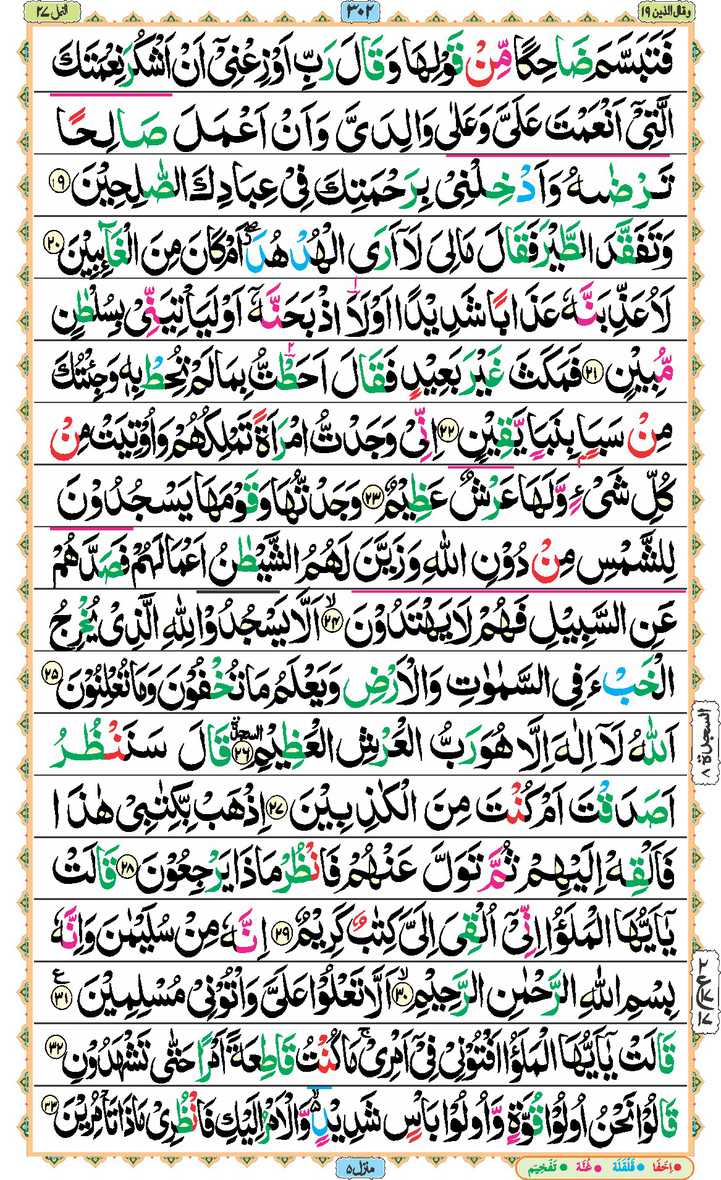 وقال الذین ١٩
٣٠٢
النمل ٢٧
فَتَبَسَّمَ ضَاحِكًا مِّنْ قَوْلِهَا وَقَالَ رَبِّ اَوْزِعْنِیْۤ اَنْ اَشْكُرَ نِعْمَتَكَ
الَّتِیْۤ اَنْعَمْتَ عَلَیَّ وَعَلٰی وَالِدَیَّ وَاَنْ اَعْمَلَ صَالِحًا
تَرْضٰىهُ وَاَدْخِلْنِیْ بِرَحْمَتِكَ فِیْ عِبَادِكَ الصّٰلِحِیْنَ ١٩
وَتَفَقَّدَ الطَّیْرَ فَقَالَ مَالِیَ لَاۤ اَرَی الْهُدْهُدَ ۖؗ اَمْ كَانَ مِنَ الْغَآىِٕبِیْنَ ٢٠
لَاُعَذِّبَنَّهٗ عَذَابًا شَدِیْدًا اَوْ لَاۡاَذْبَحَنَّهٗۤ اَوْ لَیَاْتِیَنِّیْ بِسُلْطٰنٍ
مُّبِیْنٍ ٢١ فَمَكَثَ غَیْرَ بَعِیْدٍ فَقَالَ اَحَطْتُّ بِمَا لَمْ تُحِطْ بِهٖ وَجِئْتُكَ
مِنْ سَبَاٍۭ بِنَبَاٍ یَّقِیْنٍ ٢٢ اِنِّیْ وَجَدْتُّ امْرَاَةً تَمْلِكُهُمْ وَاُوْتِیَتْ مِنْ
كُلِّ شَیْءٍ وَّلَهَا عَرْشٌ عَظِیْمٌ ٢٣ وَجَدْتُّهَا وَقَوْمَهَا یَسْجُدُوْنَ
لِلشَّمْسِ مِنْ دُوْنِ اللّٰهِ وَزَیَّنَ لَهُمُ الشَّیْطٰنُ اَعْمَالَهُمْ فَصَدَّهُمْ
عَنِ السَّبِیْلِ فَهُمْ لَا یَهْتَدُوْنَ ۙ٢٤ اَلَّا یَسْجُدُوْا لِلّٰهِ الَّذِیْ یُخْرِجُ
الْخَبْءَ فِی السَّمٰوٰتِ وَالْاَرْضِ وَیَعْلَمُ مَا تُخْفُوْنَ وَمَا تُعْلِنُوْنَ ٢٥
اَللّٰهُ لَاۤ اِلٰهَ اِلَّا هُوَ رَبُّ الْعَرْشِ الْعَظِیْمِ السجدة ٢٦ قَالَ سَنَنْظُرُ
اَصَدَقْتَ اَمْ كُنْتَ مِنَ الْكٰذِبِیْنَ ٢٧ اِذْهَبْ بِّكِتٰبِیْ هٰذَا
فَاَلْقِهْ اِلَیْهِمْ ثُمَّ تَوَلَّ عَنْهُمْ فَانْظُرْ مَاذَا یَرْجِعُوْنَ ٢٨ قَالَتْ
یٰۤاَیُّهَا الْمَلَؤُا اِنِّیْۤ اُلْقِیَ اِلَیَّ كِتٰبٌ كَرِیْمٌ ٢٩ اِنَّهٗ مِنْ سُلَیْمٰنَ وَاِنَّهٗ
بِسْمِ اللّٰهِ الرَّحْمٰنِ الرَّحِیْمِ ۙ٣٠ اَلَّا تَعْلُوْا عَلَیَّ وَاْتُوْنِیْ مُسْلِمِیْنَ ع ٣١
قَالَتْ یٰۤاَیُّهَا الْمَلَؤُا اَفْتُوْنِیْ فِیْۤ اَمْرِیْ ۚ مَا كُنْتُ قَاطِعَةً اَمْرًا حَتّٰی تَشْهَدُوْنِ ٣٢
قَالُوْا نَحْنُ اُولُوْا قُوَّةٍ وَّاُولُوْا بَاْسٍ شَدِیْدٍ ۙ۬ وَّالْاَمْرُ اِلَیْكِ فَانْظُرِیْ مَاذَا تَاْمُرِیْنَ ٣٣
السجدة ٨
منزل ٥
اخفا قلقلة غنة تفخیم